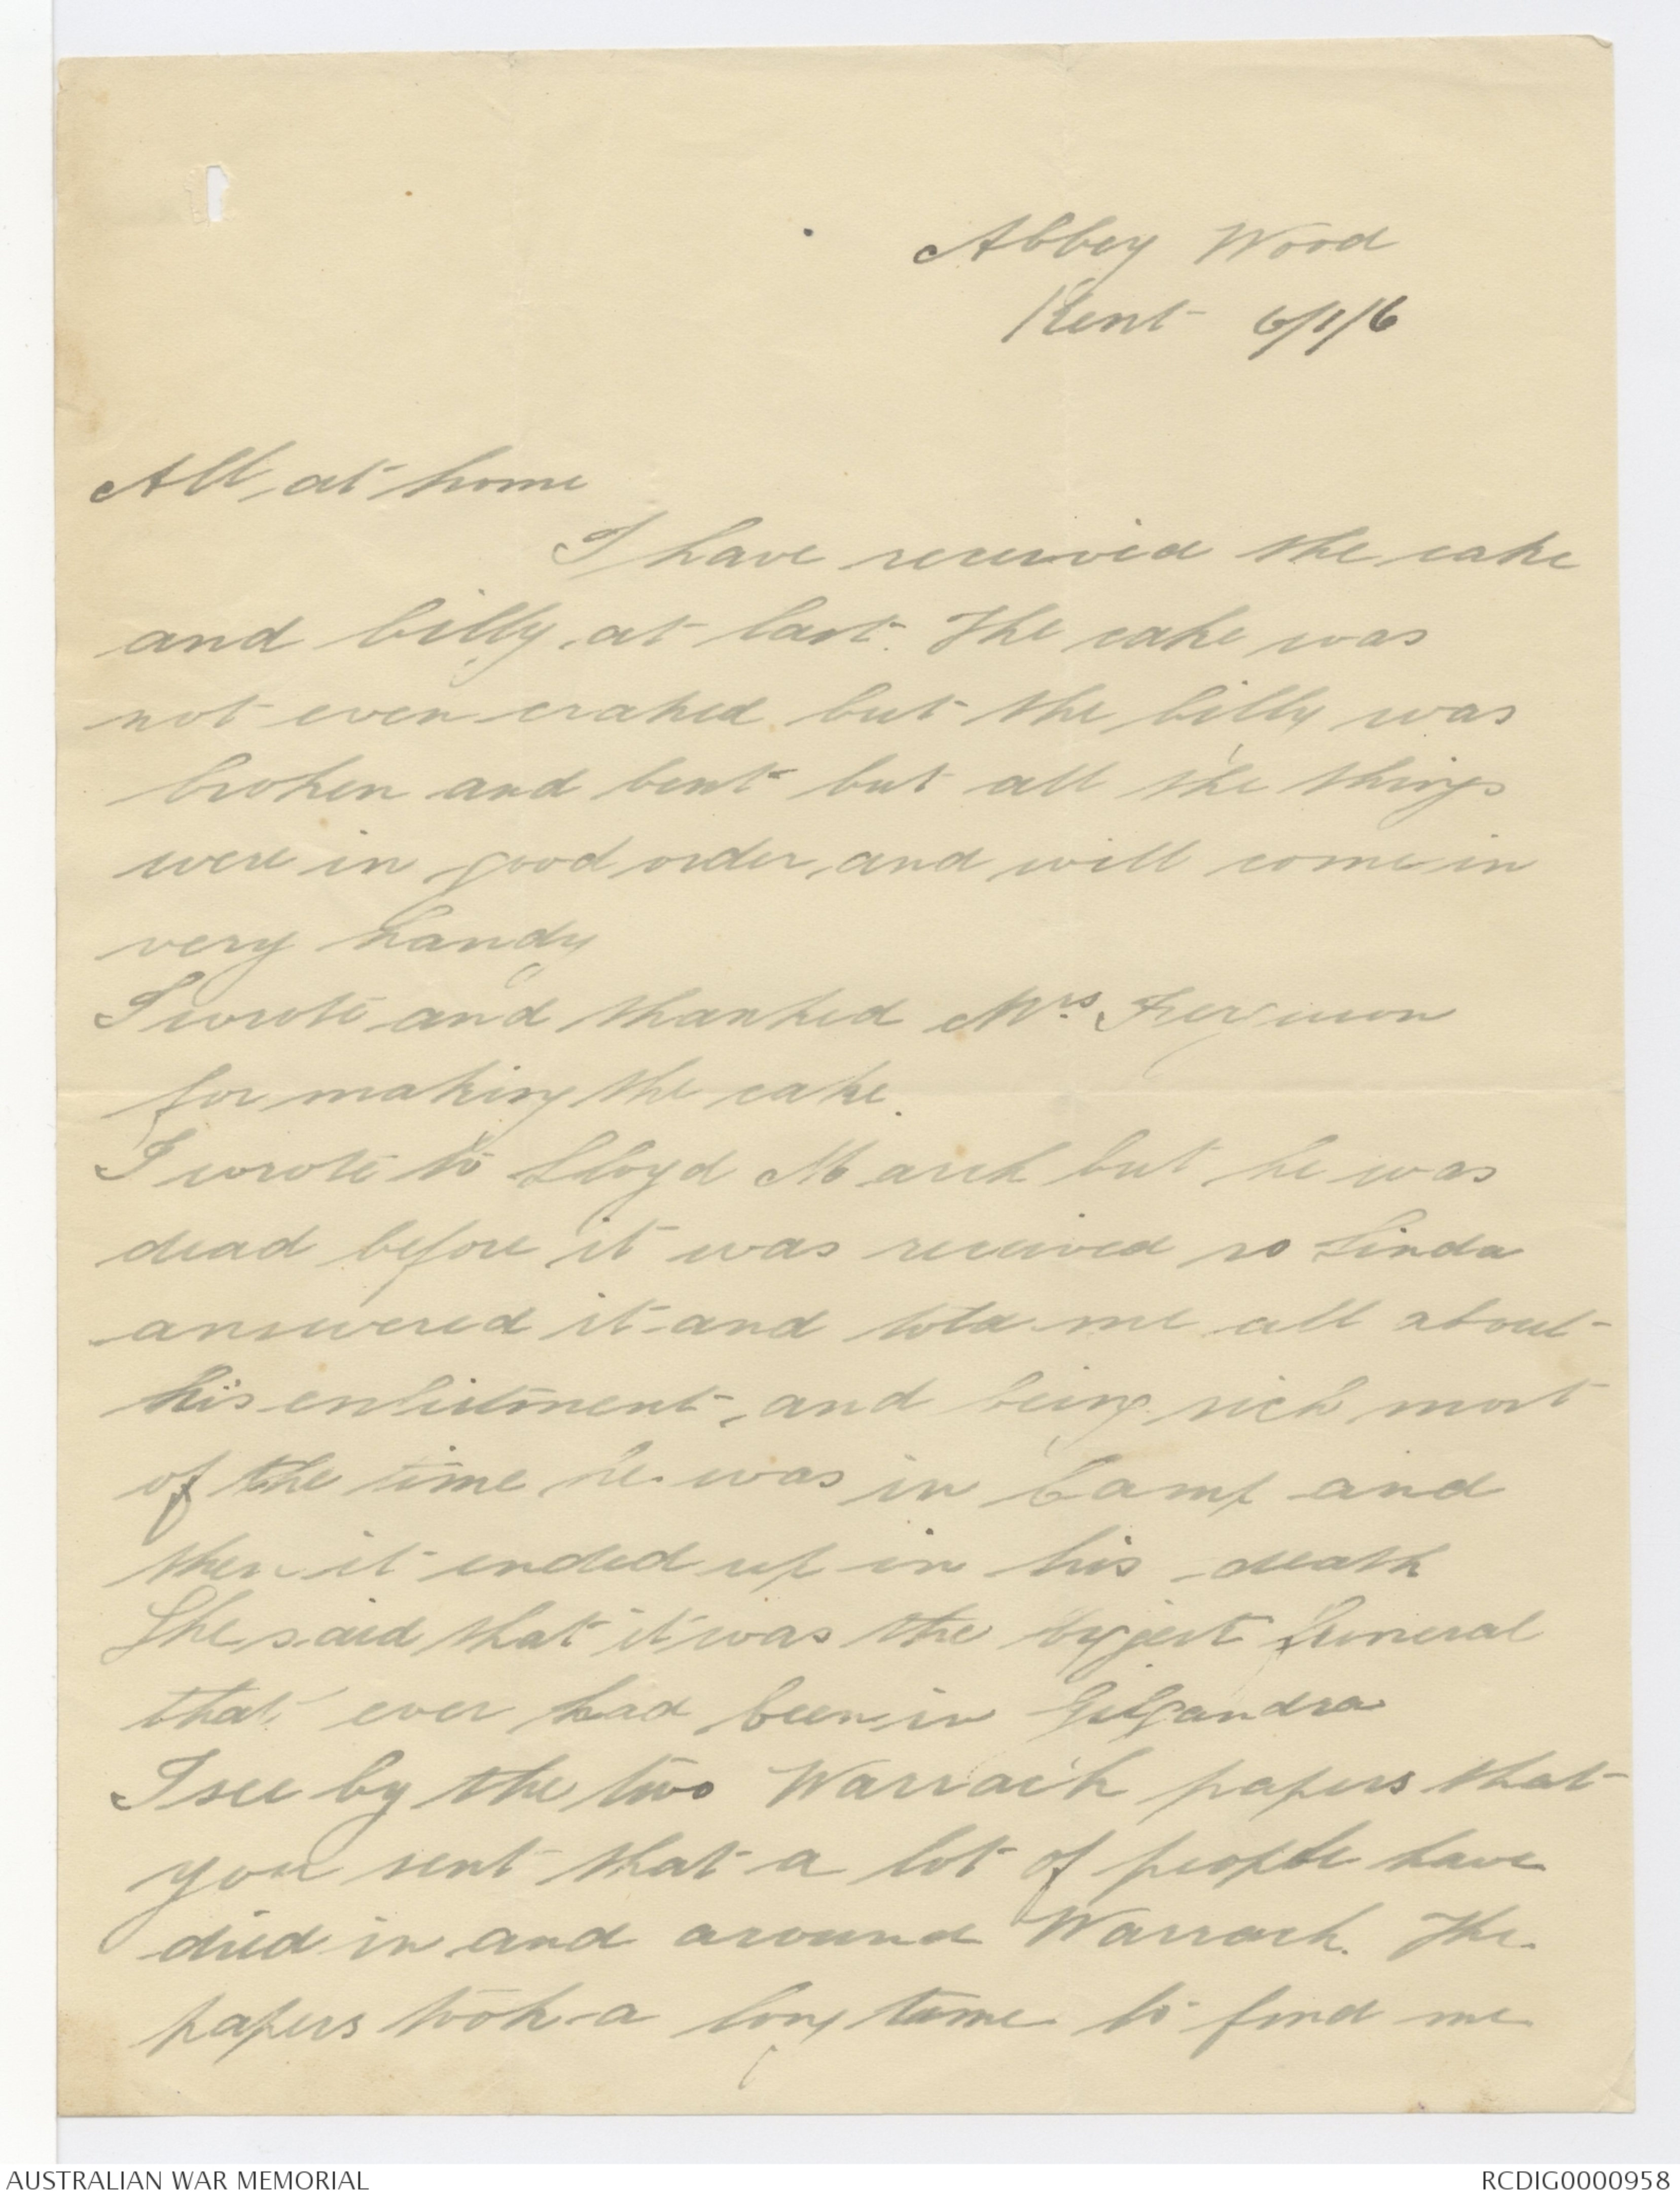 Abbey Wood
Kent 6/1/16
All at home
I have received the cake
and billy at last. The cake was
not even craked but the billy was
broken and bent but all the things
were in good order, and will come in
very handy
I wrote and thanked Mrs Ferguson
for making the cake.
I wrote to Lloyd March but he was
dead before it was received so Linda
answered it and told me all about
his enlistment, and being sick most
of the time he was in Camp and
then it ended up in his death
She said that it was the bigest funeral
that ever had been in Gilgandra
I see by the two Warrack papers that
you sent that a lot of people have
died in and around Warrack. The
papers took a long time to find me
AUSTRALIAN WAR MEMORIAL
RCDIG0000958